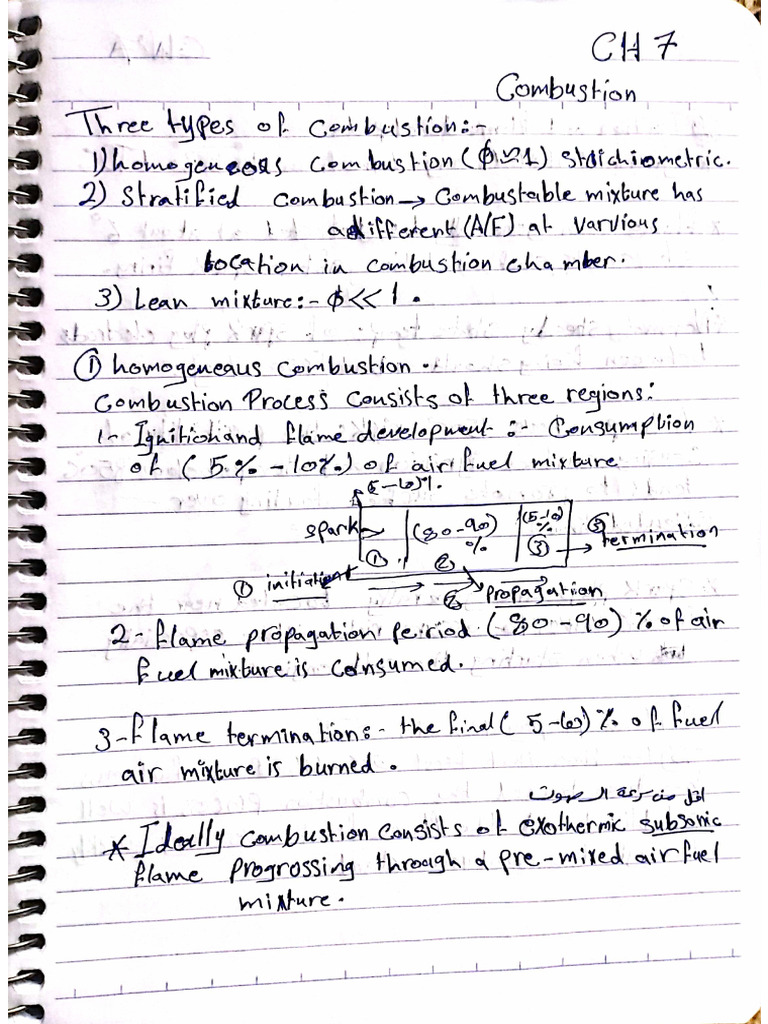 CH 7
Combustion
Three types of Combustion:-
1) homogeneous Combustion (ϕ ≈ 1) Stoichiometric.
2) Stratified Combustion → Combustable mixture has
a different (A/F) at varvious
Location in combustion chamber.
3) Lean mixture:- ϕ << 1 .
① homogeneaus Combustion .
Combustion Process Consists of three regions:
1- Ignition and flame development :- Consumption
of ( 5 % - 10 %) of air fuel mixture
(5-10)%
spark → (80-90) % (5-10) %
① ② ③ → ③ termination
① initiation → → ② propagation
2- flame propagation Period (80-90) % of air
fuel mixture is Consumed.
3- flame termination:- the final ( 5-10) % of fuel
air mixture is burned .
اقل من سرعة الصوت
* Ideally combustion Consists of exothermic subsonic
flame Progrossing through a pre-mixed air fuel
mixture .